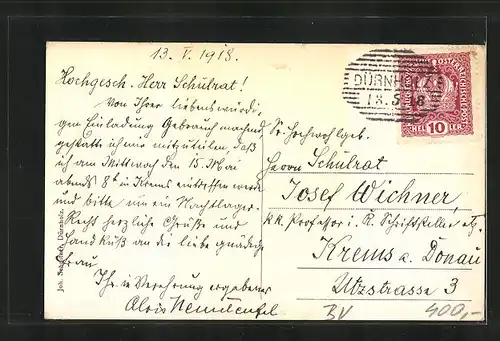 13. V. 1918.
Hochgesch. Herr Schulrat!
Von Ihrer liebenswürdi-
gen Einladung Gebrauch machend,
gestatte ich mir mitzuteilen, daß
ich am Mittwoch den 15. Mai
abends 8h in Krems eintreffen werde
und bitte um ein Nachtlager.
Recht herzliche Grüße und
Handkuß an die liebe gnädige
Frau
Ihr in Verehrung ergebener
Alois
DÜRNHOLZ
13.5. 18
HELLER 10
Sr. Hochwohlgeb.
Herrn Schulrat
Josef Wichner,
k.k. Professor i. R. Schriftsteller etz.
Krems a. Donau
Utzstrasse 3
BV
400,-
Joh. Dürnholz.